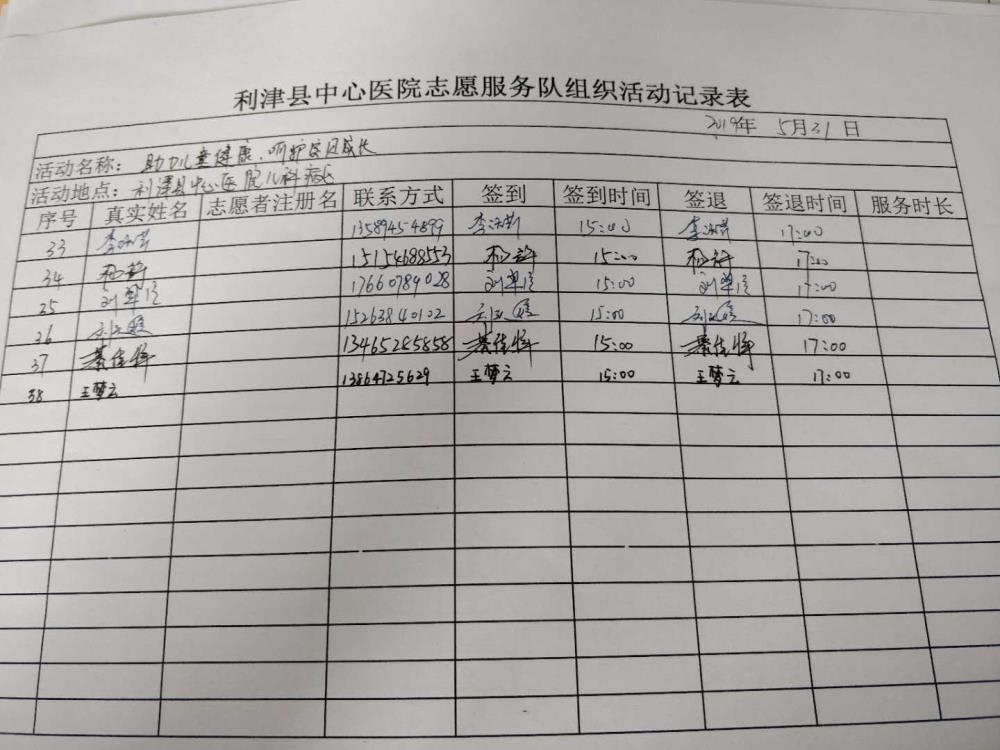 利津县中心医院志愿服务队组织活动记录表
2019年 5月31日
活动名称：助力儿童健康、呵护成长
活动地点：利津县中心医院儿科病
序号 真实姓名 志愿者注册名 联系方式 签到 签到时间 签退 签退时间 服务时长
33 李 13589454899 李 15:00 李 17:00
34 15154688553 15:00 17:00
25 刘 17660789028 刘 15:00 刘 17:00
26 15263840102 15:00 17:00
37 綦佳 13465285858 綦佳 15:00 綦佳 17:00
38 王梦云 13864725629 王梦云 15:00 王梦云 17:00